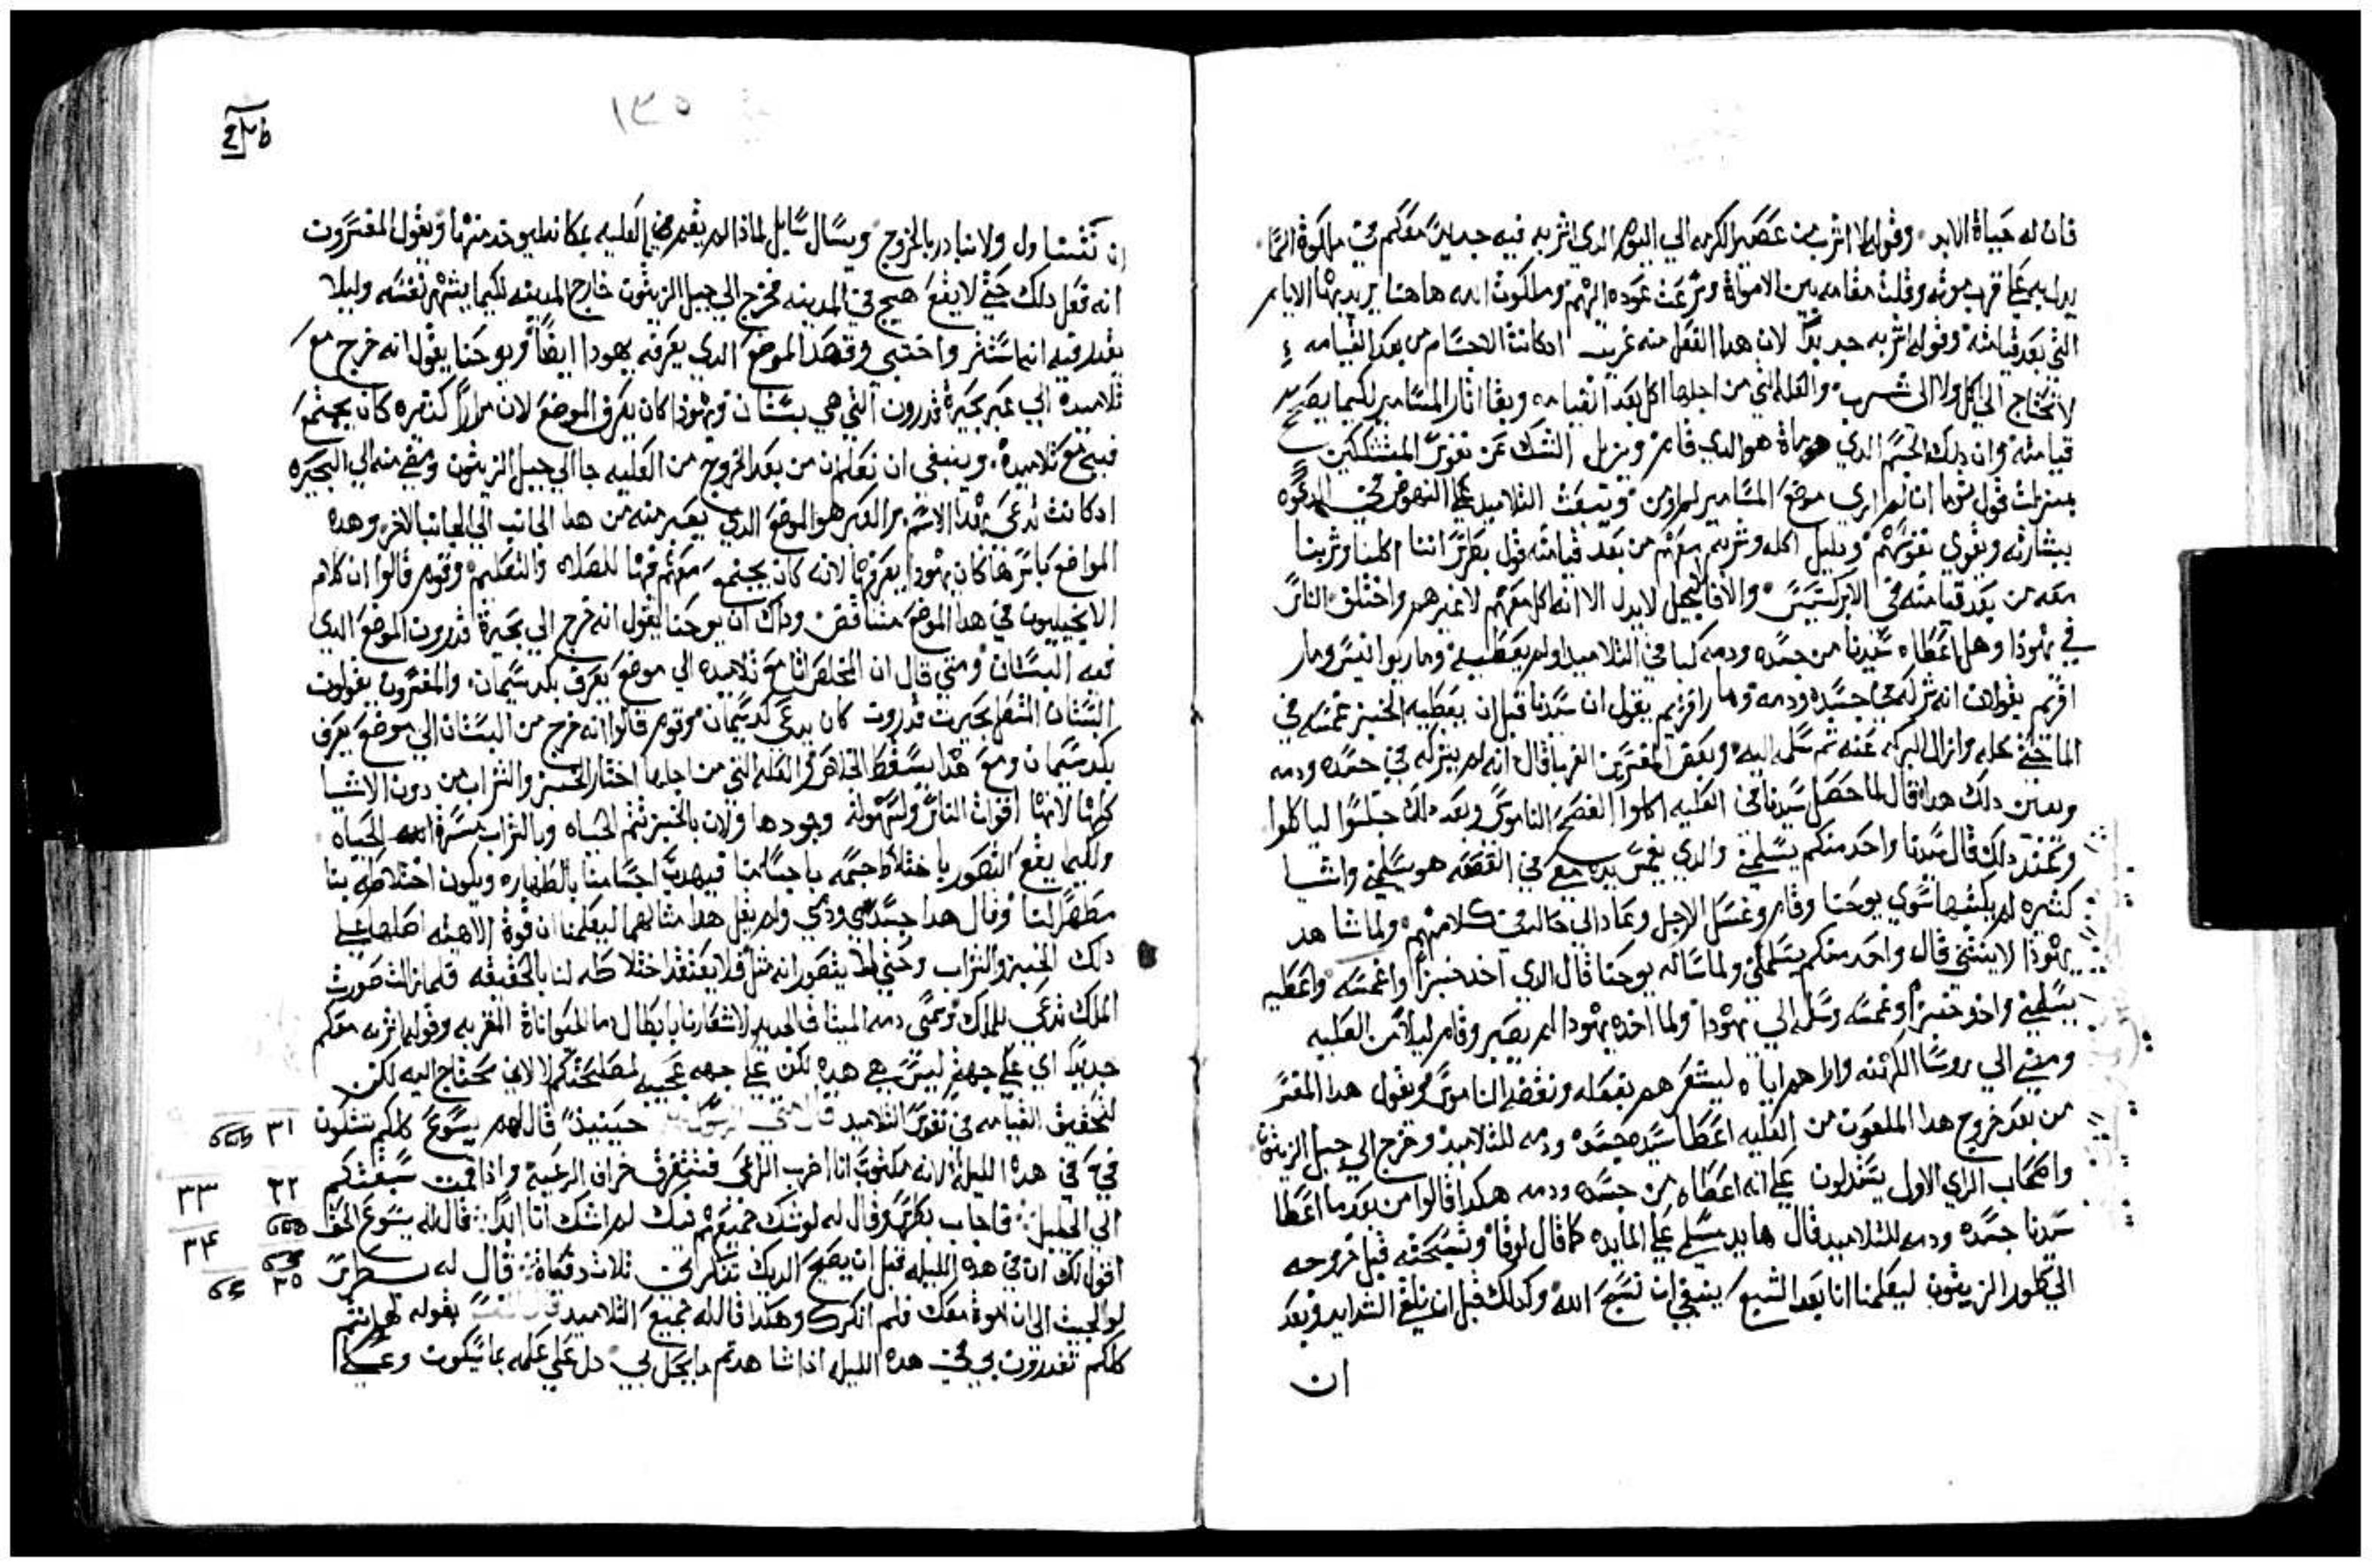 فان له حياة الابد. وقوله لا اشرب من عصير الكرمه الي اليوم الدي اشربه فيه جديدا معكم في ملكوة السما
يدل به علي قرب موته وقلت مقامه بين الاموات وسرعت عوده اليهم وملكوت الله هاهنا يريد بها الايام
التي بعد قيامته وقوله اشربه جديدًا لان هدا الفعل منه غريب ادكانت الاجسام من بعد القيامه
لا تحتاج الي اكل ولا الى شرب والعله التي من اجلها اكل بعد القيامه وبقا اثار المسامير لكيما يصحح
قيامته وان دلك الجسم الدي مات هو الدي قام ويزيل الشك عن نفوس المتشككين
بمنزلت قول توما ان لم اري موضع المسامير لم اومن ويبعث التلاميد علي النهوض في الدعوه
ببشارته ويقوي نفوسهم ودليل اكله وشربه معهم من بعد قيامته قول بطرس اننا اكلنا وشربنا
معه من بعد قيامته في الابركسيس والا فالانجيل لا يدل الا انه اكل معهم لا غير هم واختلف الناس
في يهودا وهل اعطاه سيدنا من جسده ودمه كباقي التلاميد او لم يعطيه ومار يوانيس ومار
افريم يقولان انه شركه في جسده ودمه ومار افريم يقول ان سيدنا قبل ان يعطيه الخبز غمسه في
الما حتي حله وازال البركه عنه ثم سلمه اليه وبعض المفسرين الغربا قال انه لم يشركه في جسده ودمه
وبين دلك هدا قال لما حصل سيدنا في العليه اكلوا الفصح الناموسي وبعد دلك جلسوا لياكلوا
وعند دلك قال سيدنا واحد منكم يسلمني والدي يغمس يده معي في القصعه هو يسلمني واشيا
كثيره لم يكتبها سوي يوحنا وقام وغسل الارجل وعاد الي حاله في كلامهم ولما شاهد
يهودا لا ينثني قال واحد منكم يسلمني ولما ساله يوحنا قال الدي اخد خبزًا واغمسه واعطيه
يسلمني واخد خبزًا وغمسه وسلمه الي يهودا ولما اخده يهودا لم يصبر وقام ليلا من العليه
ومضي الي روسا الكهنه واراهم اياه ليشعرهم بفعله ونقضه الناموس ويقول هدا المفسر
من بعد خروج هدا الملعون من العليه اعطا سيده جسده ودمه للتلاميد وخرج الي جبل الزيتون
واصحاب الراي الاول يستدلون علي انه اعطاه من جسده ودمه هكدا قالوا من بعد ما اعطا
سيدنا جسده ودمه للتلاميد قال ها يد مسلمي علي المايده كما قال لوقا وتسبحته قبل خروجه
الي طور الزيتون ليعلمنا انا بعد الشبع ينبغي ان نسبح الله وكدلك قبل ان نلقي الشدايد وبعد
ان
١٣٥
ان نتناول ولا نبادر بالخروج ويسال سايل لماذا لم يقم في العليه بمكانه ليوخد منها ويقول المفسرون
انه فعل دلك حتي لا يقع هيج في المدينه فخرج الي جبل الزيتون خارج المدينه لكيما يشهر نفسه وليلا
يظن فيه انما استتر واختبي وقصد الموضع الدي يعرفه يهودا ايضًا ويوحنا يقول انه خرج مع
تلاميده الي عبر بحيرة قدرون التي هي بستان ويهودا كان يعرف الموضع لان مرارًا كثيره كان يجتمع
فيه مع تلاميده. وينبغي ان نعلم ان من بعد الخروج من العليه جا الي جبل الزيتون ومضي منه الي البحيره
ادكانت تدعي بهدا الاسم والعبر هو الموضع الدي يعبر منه من هدا الجانب الي الجانب الاخر وهده
المواضع باسرها كان يهودا يعرفها لانه كان يجتمع معهم فيها للصلاه والتعليم وقوم قالوا ان كلام
الانجيليون في هدا الموضع متناقض وداك ان يوحنا يقول انه خرج الي بحيرة قدرون الموضع الدي
فيه البستان ومتي قال ان المخلص اتا مع تلاميده الي موضع يعرف بكدسيمان. والمفسرون يقولون
البستان المتصل ببحيرت قدرون كان يدعي كدسيمان وقوم قالوا انه خرج من البستان الي موضع يعرف
بكدسيمان ومع هدا يسقط التناقض والعله التي من اجلها اختار الخبز والشراب من دون الاشيا
كلها لانها اقوات الناس ولسهولة وجودها ولان بالخبز تتم الحياه وبالشراب مسرة الحياه
ولكيما يقع التصور باختلاط جسمه باجسامنا فيهدب اجسامنا بالطهاره ويكون اختلاطه بنا
مطهرًا لنا وقال هدا جسدي ودمي ولم يقل هدا مثالهما ليعلمنا ان قوة الالاهيه احلها علي
دلك الخبز والشراب وحتي لا يتصور انه مثل فلا يعتقد اختلاطه لنا بالحقيقه فلما زالت صورت
الملك تدعي للملك وسمي دمه الميثاق الجديد لاشعارنا بابطال دما الحيوانات المقربه وقوله اشربه معكم
جديدًا اي علي جهة ليس هي هده لكن علي جهه عجيبه لمصلحتكم لا لاني محتاج اليه لكن
لتحقيق القيامه في نفوس التلاميد قال متي الرسول حينيد قال لهم يسوع كلكم تشكون ٣١
في في هده الليله لانه مكتوب انا اضرب الراعي فتتفرق خراف الرعيه واذا قمت سبقتكم ٣٢ ٣٣
الي الجليل فاجاب بطرس وقال له لو شك جميعهم فيك لم اشك انا ابدًا قال له يسوع الحق ٣٤
اقول لك ان في هده الليله قبل ان يصيح الديك تنكرني ثلاث دفعاة قال له بطرس ٣٥
لو الجيت الي ان اموة معك فلم انكرك وهكدا قال له جميع التلاميد قال المفسر بقوله لهم انتم
كلكم تغدرون بي في هده الليله اذا شاهدتم ما يحل بي دل علي علمه بما سيكون